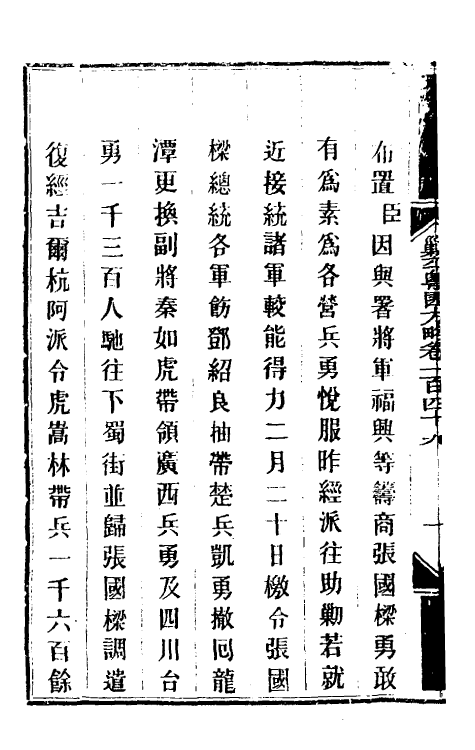 布置臣因與署將軍福興等籌商張國樑勇敢
有爲素爲各營兵勇悅服昨經派往助勦若就
近接統諸軍較能得力二月二十日檄令張國
樑總統各軍飭鄧紹良抽帶楚兵凱勇撤囘龍
潭更換副將秦如虎帶領廣西兵勇及四川台
勇一千三百人馳往下蜀街並歸張國樑調遣
復經吉爾杭阿派令虎嵩林帶兵一千六百餘